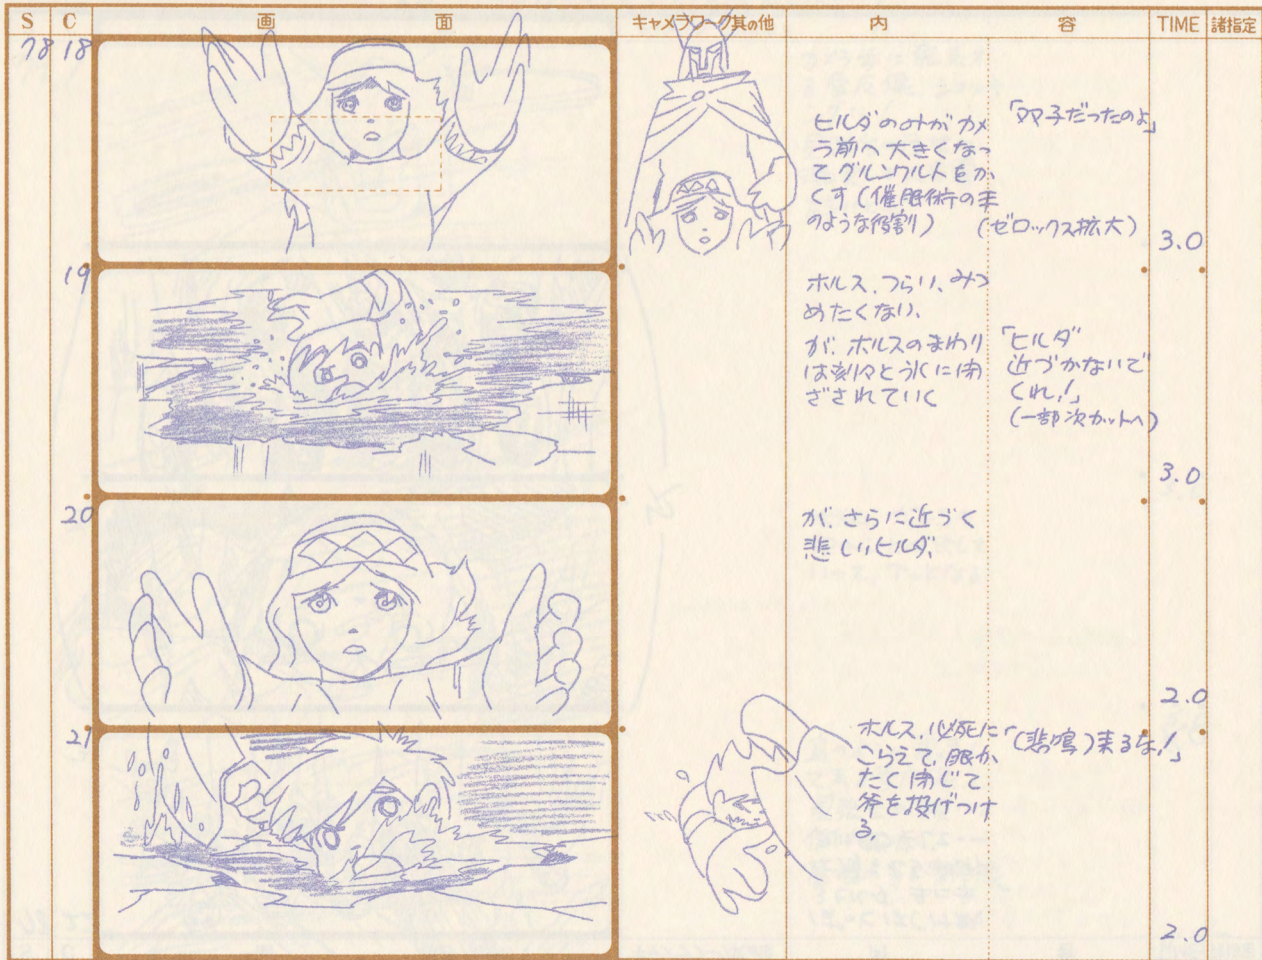 S C 画 面 キャメラワーク其の他 内 容 TIME 諸指定
78 18
ヒルダの
カメ
ラ前へ大きくなっ
てグルンワルトをか
くす(催眠術の手
のような役割)
「
子だったのよ」
(ゼロックス拡大)
3.0
19
ホルス、つらい、みつ
めたくない、
が、ホルスのまわり
は刻々と氷に閉
ざされていく
「ヒルダ
近づかないで
くれ!」
(一部次カットへ)
3.0
20
が、さらに近づく
悲しいヒルダ、
2.0
21
ホルス、必死に
こらえて、眼か
たく閉じて
斧を投げつけ
る、
「(悲鳴)来るな!」
2.0